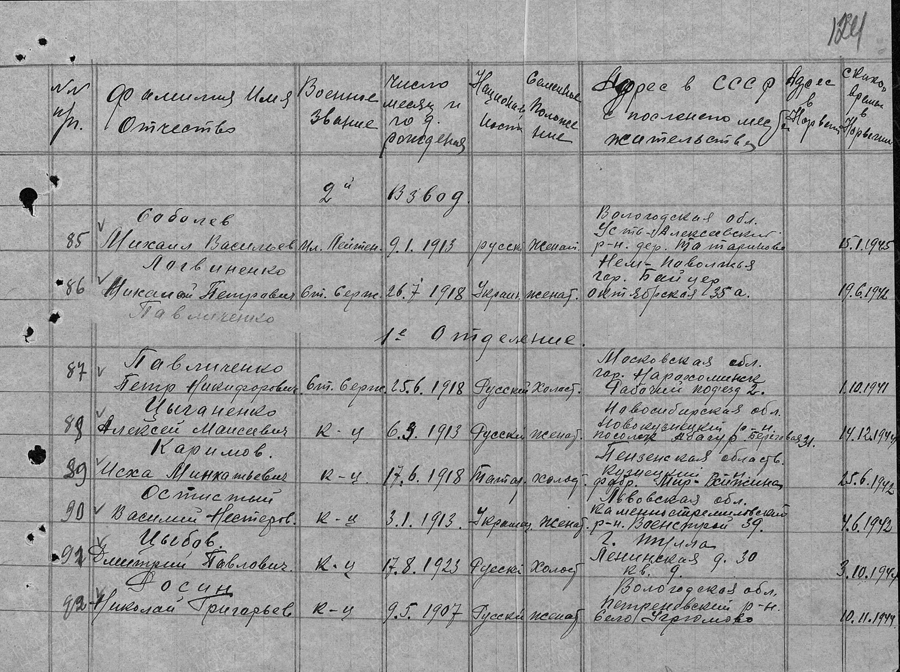 124
№№ п/п. Фамилия Имя Отчество Военное Звание Число месяц и год рождения Национальность Семейное Положение Адрес в СССР с послеnего места жительства Адрес в Норвегии Сколько времени в Норвегии
2й Взвод.
Соболев Вологодская обл.
Усть-Алексеевский
85 Михаил Васильев Мл. Лейтен. 9.1.1913 русск женат р-н. дер. Татариново 15.1.1945
Логвиненко Нем-Поволжья
гор. Бальцер
86 Николай Петрович Ст. Серж. 26.7 1918 Украин женат. октябрская 35а. 19.6.1942
Павличенко
1е Отделение.
Павличенко Московская обл.
гор. Нарофоминск
87 Петр Никифорович Ст. Серж. 25.6.1918 Русский Холост. Рабочий подъезд 2. 1.10.1941
Цыганенко Новосибирская обл.
Новокузнецкий р-н.
88 Алексей Моисеевич к-ц 6.9.1913 Русский женат. поселок Абагур Береговая 31. 14.12.194
Каримов. Пензенская область.
Кузнецкий р-н.
89 Исха к-ц. 17.6.1918 Татар. холост. фабр. 25.6.1942
Остистий Львовская обл.
90 Василий Нестеров. к-ц 3.1.1913. Украинец Женат. р-н. Военстрой 39. 4.6.1942
Цыбов. г. Тулла
Ленинская д. 30
91 Дмитрий Павлович. к-ц 17.8.1923 Русский Холост кв. 9. 3.10.194
Фосин Вологодская обл.
Петреневский р-н.
92 Николай Григорьев. к-ц 9.5.1907 Русский женат. село Угрюмово 10.11.194